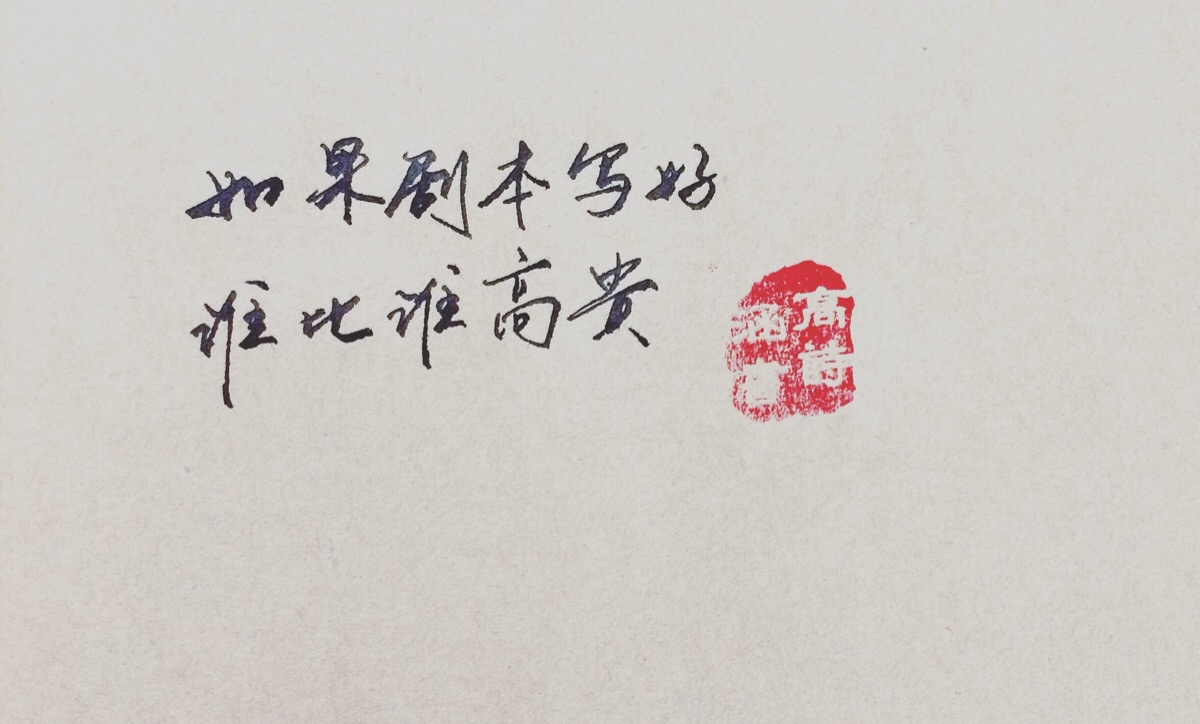 如果剧本写好
谁比谁高贵
高诗
涵